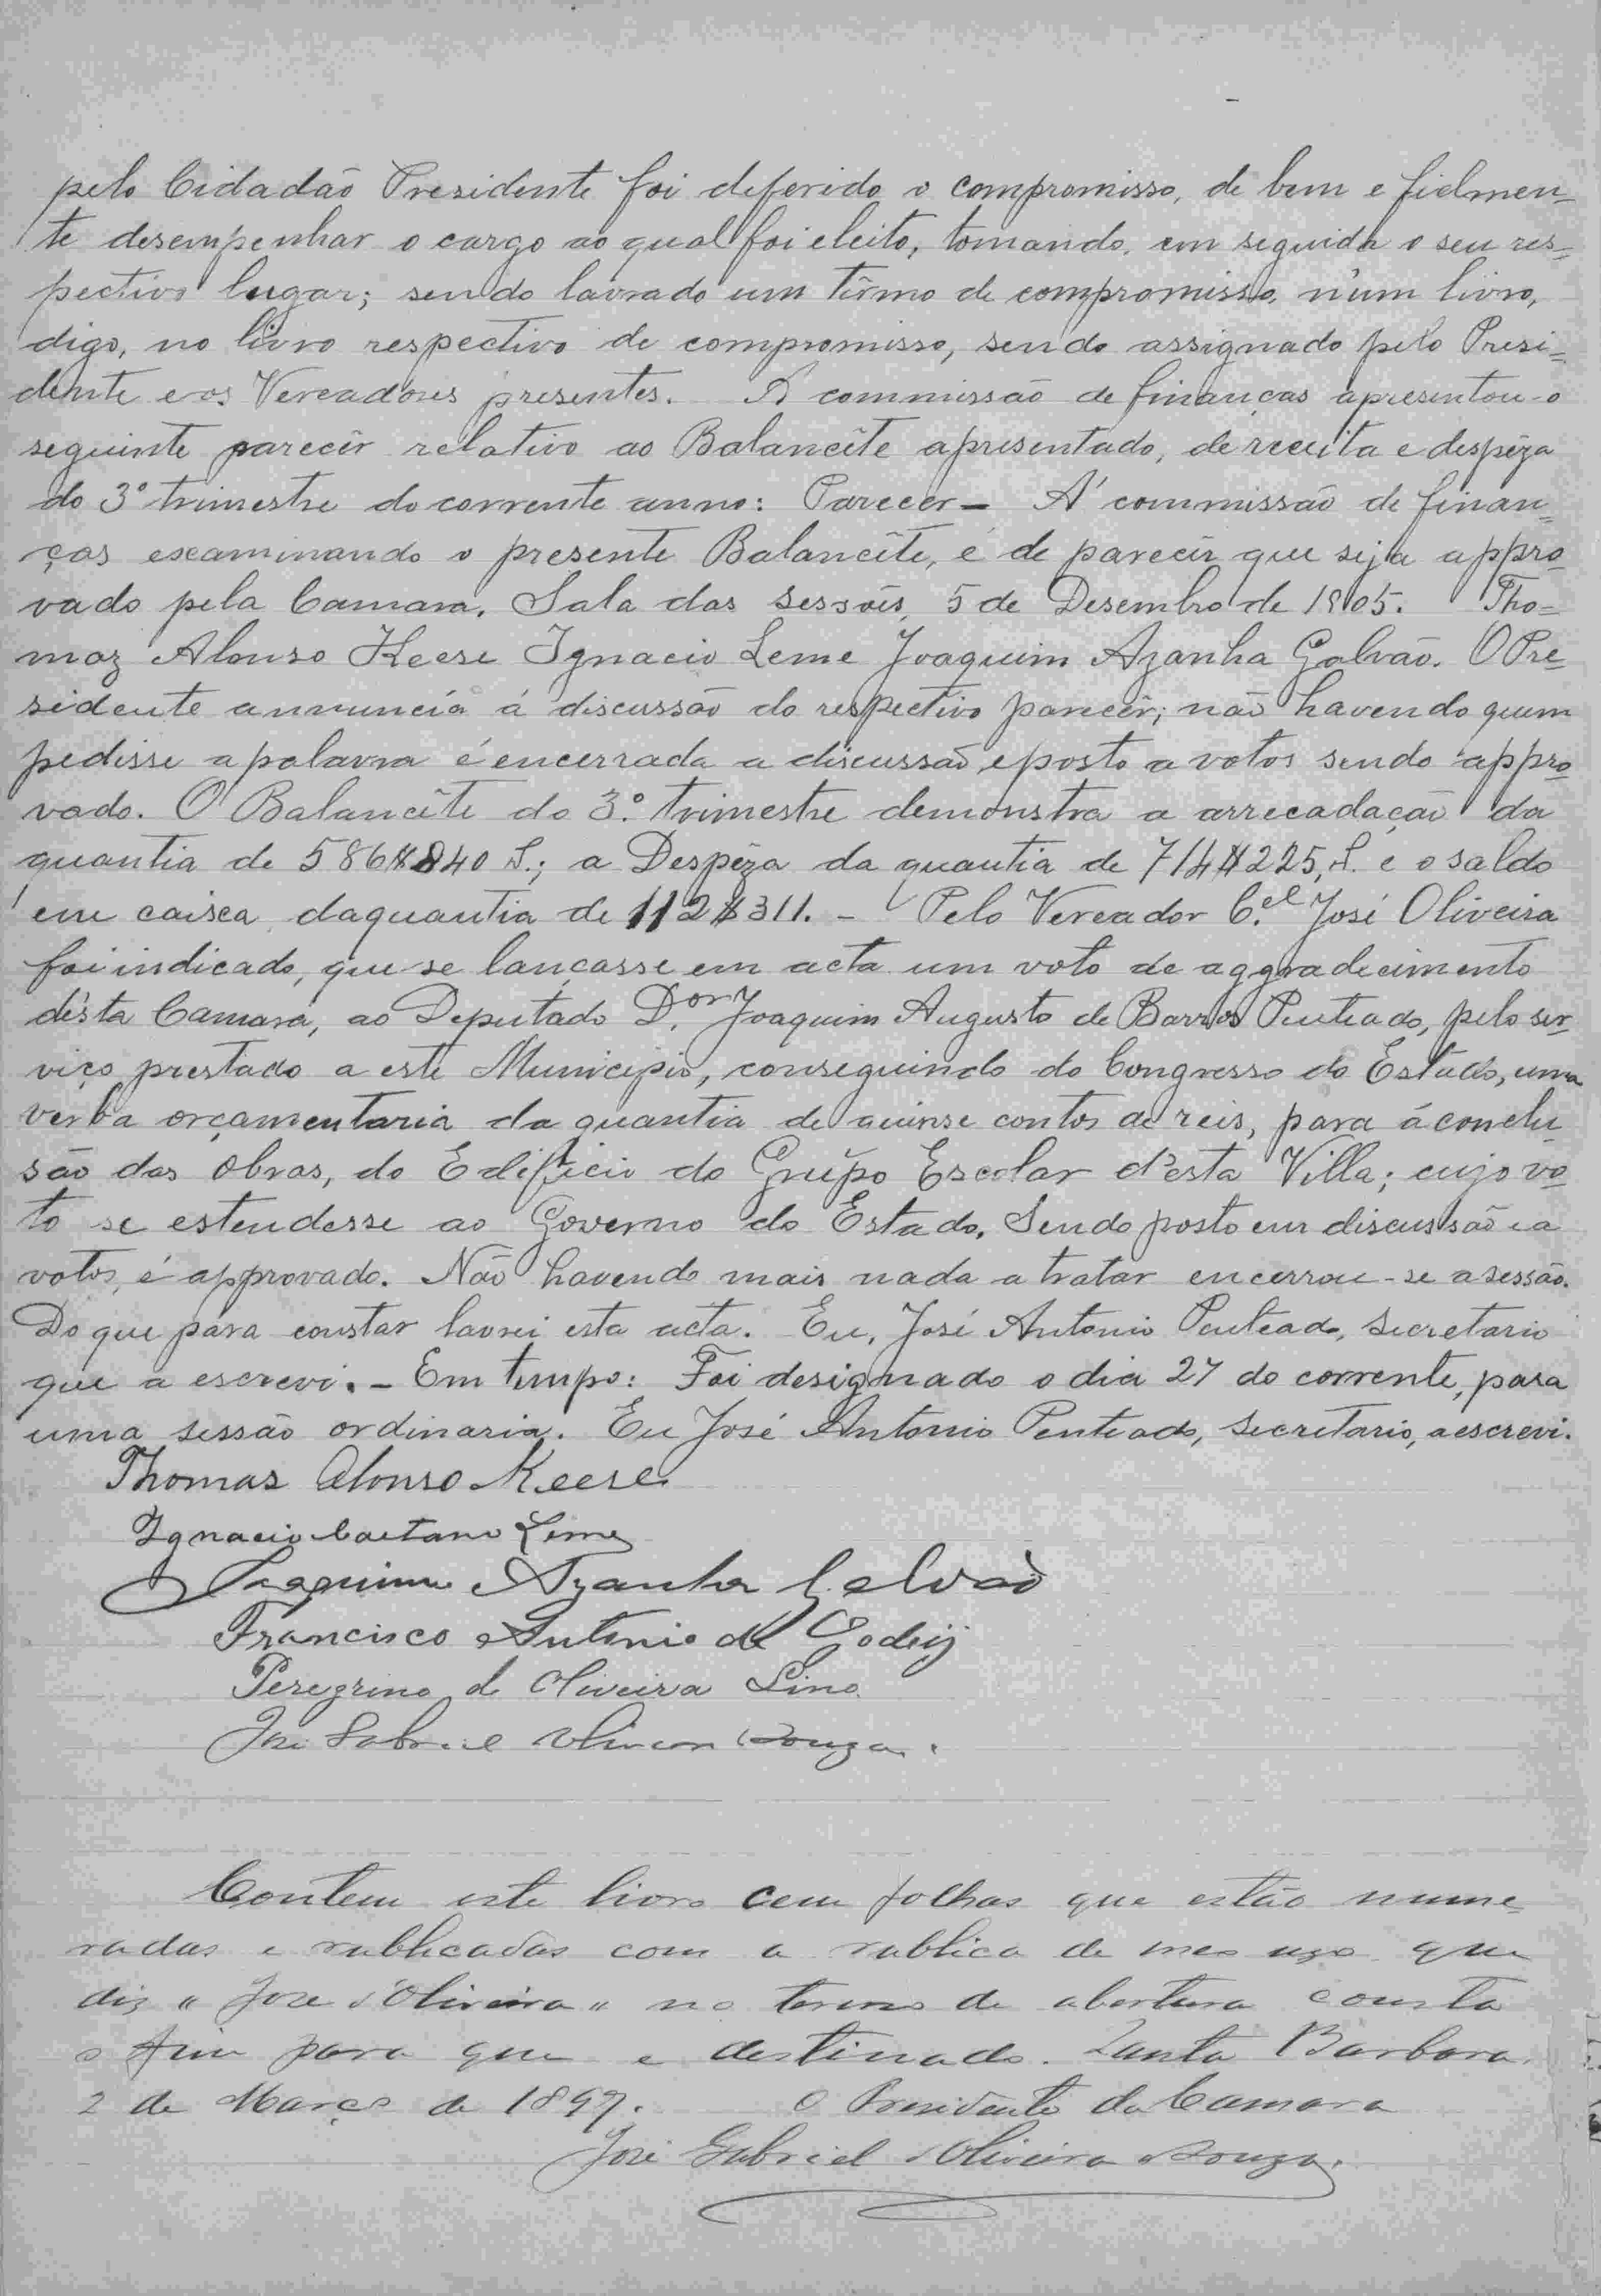 pelo Cidadão Presidente foi deferido o compromisso, de bem e fielmen-
te desempenhar o cargo ao qual foi eleito, tomando, em seguida o seu res=
pectivo lugar; sendo lavrado um têrmo de compromisso, n'um livro,
digo, no livro respectivo de compromisso, sendo assignado pelo Presi=
dente e os Vereadores presentes. A commissão de finanças apresentou o
seguinte parecêr relativo ao Balancête apresentado, de receita e despêza
do 3º trimestre do corrente anno: Parecer - A' commissão de finan=
ças escaminando o presente Balancête, é de parecêr que seja appro-
vado pela Camara. Sala das Sessões, 5 de Desembro de 1905. Tho=
maz Alonso Keese Ignacio Leme Joaquim Azanha Galvão. O Pre=
sidente annuncia á discussão do respectivo parecêr; não havendo quem
pedisse a palavra é encerrada a discussão, e posto a votos sendo appro-
vado. O Balancête do 3º trimestre demonstra a arrecadação da
quantia de 586$840 S.; a Despêza da quantia de 714$225, S. e o saldo
em caisca, da quantia de 112$311. - Pelo Vereador C.el José Oliveira
foi indicado, que se lançasse em acta um voto de aggradecimento
désta Camara, ao Deputado D.or Joaquim Augusto de Barros Penteado, pelo ser-
viço prestado a este Municipio, conseguindo do Congresso do Estado, uma
verba orçamentaria da quantia de quinse contos de reis, para á conclu-
são das obras, do Edificio do Grupo Escolar d'esta Villa; cujo vo-
to se estendesse ao Governo do Estado. Sendo posto em discussão e a
votos, é approvado. Não havendo mais nada a tratar encerrou-se a sessão.
Do que para constar lavrei esta acta. Eu, José Antonio Penteado, Secretario
que a escrevi. - Em tempo: Foi designado o dia 27 do corrente, para
uma sessão ordinaria. Eu José Antonio Penteado, Secretario, a escrevi.
Thomas Alonso Keese
Ignacio Caetano Leme
Joaquim Azanha Galvão
Francisco Antonio de Godoy
Peregrino de Oliveira Lino
José Gabriel Oliveira Souza.
Contem este livro cem folhas que estão nume-
radas e rublicadas com a rublica de meo uzo que
diz " Jose d'Oliveira " no termo de abertura consta
o fim para que e destinado. Santa Barbara
2 de Março de 1897. O Presidente da Camara
José Gabriel d'Oliveira Souza.